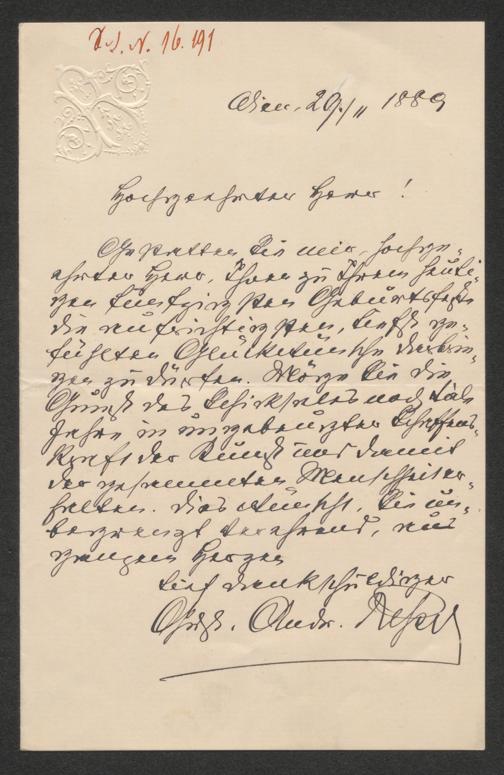 I. N. 16.191
Wien, 29./11 1889
Hochgeehrter Herr!
Gestatten Sie mir, hochge-
ehrter Herr, Ihnen zu Ihrem heuti-
gen fünfzigsten Geburtsfeste
die aufrichtigsten, tiefst ge-
fühlten Glückwünsche darbrin-
gen zu dürfen. Möge Sie die
Gunst des Schicksales noch viele
Jahre in ungebeugter Schaffens-
kraft der Kunst und damit
der gesammten Menschheit er-
halten. Dies wünscht, Sie un-
begrenzt verehrend, aus
ganzem Herzen
Ihr dankschuldiger
Gust. Andr.